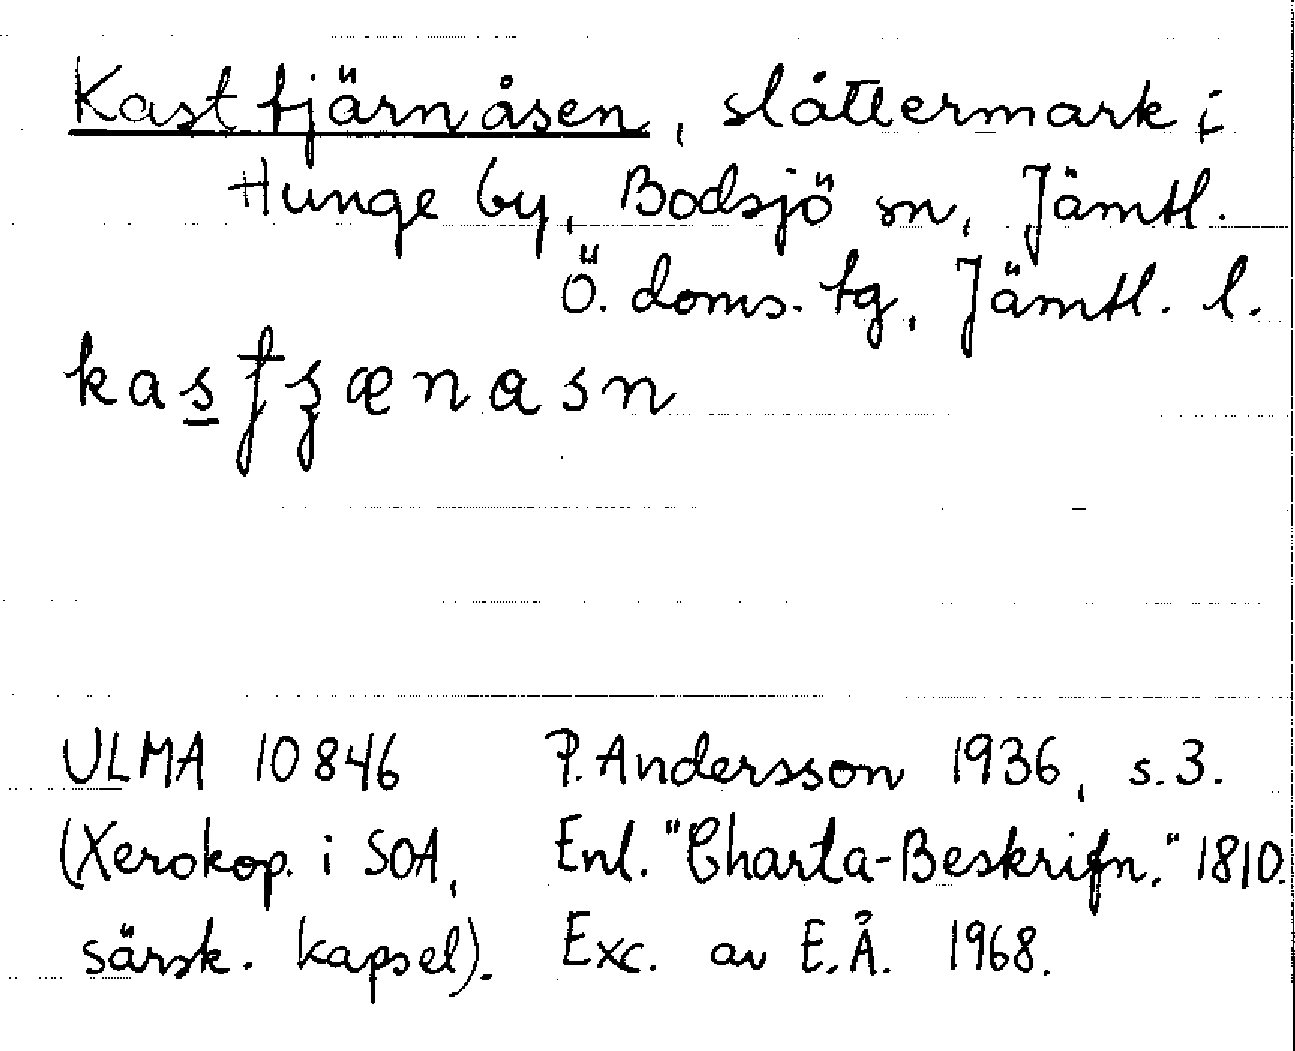 Kasttjärnåsen, slåttermark i
Hunge by, Bodsjö sn, Jämtl.
Ö. doms. tg, Jämtl. l.
ULMA 10846 P. Andersson 1936, s. 3.
(Xerokop. i SOA, Enl. "Charta-Beskrifn." 1810.
särsk. kapsel). Exc. av E.Å. 1968.